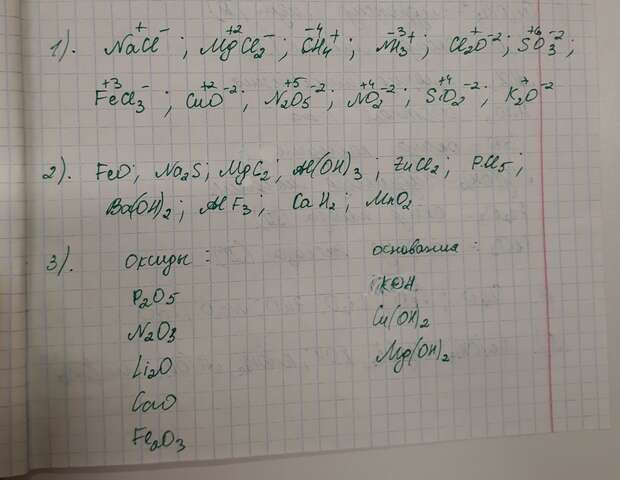 1). Na⁺Cl⁻; Mg⁺²Cl₂⁻; C⁻⁴H₄⁺; N⁻³H₃⁺; Cl₂⁺O⁻²; S⁺⁶O₃⁻²;
Fe⁺³Cl₃⁻; Cu⁺²O⁻²; N₂⁺⁵O₅⁻²; N⁺⁴O₂⁻²; Si⁺⁴O₂⁻²; K₂⁺O⁻²
2). FeO; Na₂S; MgC₂; Al(OH)₃; ZnCl₂; PCl₅;
Ba(OH)₂; AlF₃; CaH₂; MnO₂
3). Оксиды: основания:
P₂O₅ KOH
N₂O₃ Cu(OH)₂
Li₂O Mg(OH)₂
CaO
Fe₂O₃